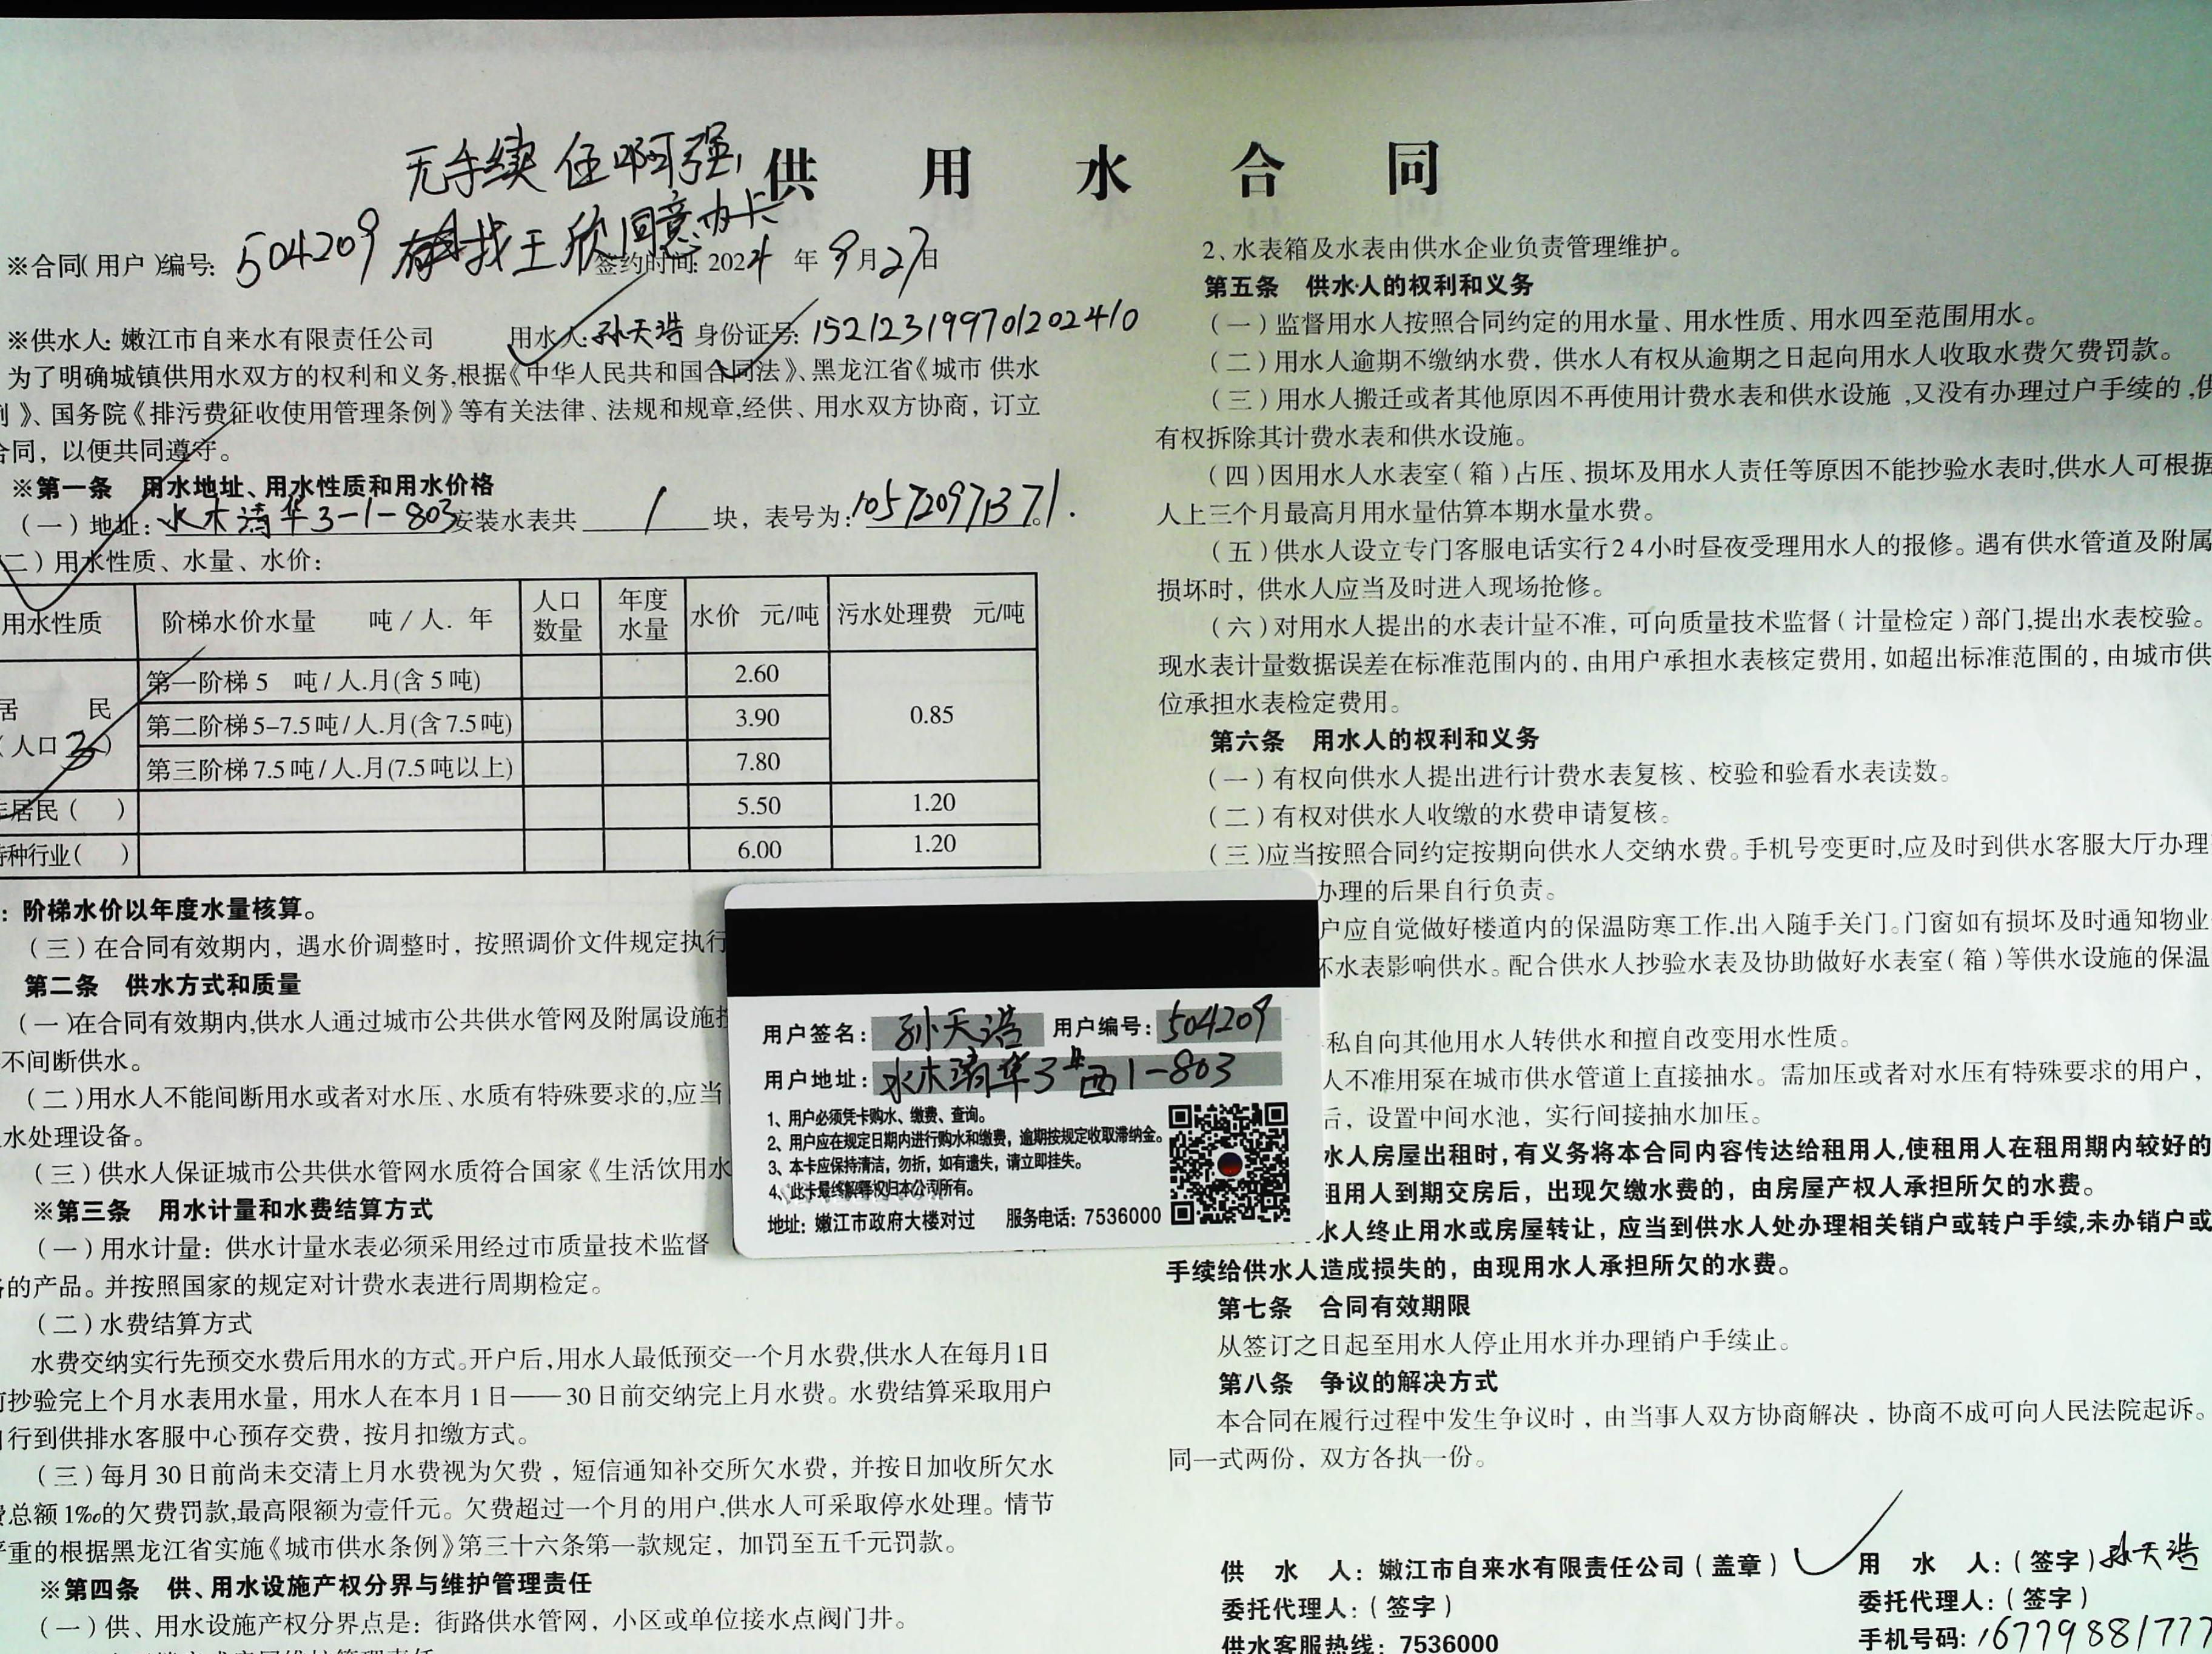 无手续 任啊强,
供用水合同
找王欣同意办卡
※合同(用户)编号: 504209
签约时间: 2024年9月27日
※供水人: 嫩江市自来水有限责任公司 用水人: 孙天浩 身份证号: 152123199701202410
为了明确城镇供用水双方的权利和义务,根据《中华人民共和国合同法》、黑龙江省《城市供水
例》、国务院《排污费征收使用管理条例》等有关法律、法规和规章,经供、用水双方协商,订立
合同,以便共同遵守。
※第一条 用水地址、用水性质和用水价格
(一)地址: 水木清华3-1-803 安装水表共 1 块,表号为: 105720971371.
二)用水性质、水量、水价:
用水性质 阶梯水价水量 吨/人.年 人口数量 年度水量 水价 元/吨 污水处理费 元/吨
居民(人口3) 第一阶梯5 吨/人.月(含5吨) 2.60 0.85
第二阶梯5-7.5吨/人.月(含7.5吨) 3.90
第三阶梯7.5吨/人.月(7.5吨以上) 7.80
非居民( ) 5.50 1.20
特种行业( ) 6.00 1.20
:阶梯水价以年度水量核算。
(三)在合同有效期内,遇水价调整时,按照调价文件规定执行
第二条 供水方式和质量
(一)在合同有效期内,供水人通过城市公共供水管网及附属设施
不间断供水。
(二)用水人不能间断用水或者对水压、水质有特殊要求的,应当
水处理设备。
(三)供水人保证城市公共供水管网水质符合国家《生活饮用水
※第三条 用水计量和水费结算方式
(一)用水计量:供水计量水表必须采用经过市质量技术监督
的产品。并按照国家的规定对计费水表进行周期检定。
(二)水费结算方式
水费交纳实行先预交水费后用水的方式。开户后,用水人最低预交一个月水费,供水人在每月1日
抄验完上个月水表用水量,用水人在本月1日——30日前交纳完上月水费。水费结算采取用户
行到供排水客服中心预存交费,按月扣缴方式。
(三)每月30日前尚未交清上月水费视为欠费,短信通知补交所欠水费,并按日加收所欠水
费总额1‰的欠费罚款,最高限额为壹仟元。欠费超过一个月的用户,供水人可采取停水处理。情节
严重的根据黑龙江省实施《城市供水条例》第三十六条第一款规定,加罚至五千元罚款。
※第四条 供、用水设施产权分界与维护管理责任
(一)供、用水设施产权分界点是:街路供水管网,小区或单位接水点阀门井。
2、水表箱及水表由供水企业负责管理维护。
第五条 供水人的权利和义务
(一)监督用水人按照合同约定的用水量、用水性质、用水四至范围用水。
(二)用水人逾期不缴纳水费,供水人有权从逾期之日起向用水人收取水费欠费罚款。
(三)用水人搬迁或者其他原因不再使用计费水表和供水设施,又没有办理过户手续的,供
有权拆除其计费水表和供水设施。
(四)因用水人水表室(箱)占压、损坏及用水人责任等原因不能抄验水表时,供水人可根据
人上三个月最高月用水量估算本期水量水费。
(五)供水人设立专门客服电话实行24小时昼夜受理用水人的报修。遇有供水管道及附属
损坏时,供水人应当及时进入现场抢修。
(六)对用水人提出的水表计量不准,可向质量技术监督(计量检定)部门,提出水表校验。
现水表计量数据误差在标准范围内的,由用户承担水表核定费用,如超出标准范围的,由城市供
位承担水表检定费用。
第六条 用水人的权利和义务
(一)有权向供水人提出进行计费水表复核、校验和验看水表读数。
(二)有权对供水人收缴的水费申请复核。
(三)应当按照合同约定按期向供水人交纳水费。手机号变更时,应及时到供水客服大厅办理
办理的后果自行负责。
户应自觉做好楼道内的保温防寒工作,出入随手关门。门窗如有损坏及时通知物业
坏水表影响供水。配合供水人抄验水表及协助做好水表室(箱)等供水设施的保温
私自向其他用水人转供水和擅自改变用水性质。
人不准用泵在城市供水管道上直接抽水。需加压或者对水压有特殊要求的用户,
后,设置中间水池,实行间接抽水加压。
水人房屋出租时,有义务将本合同内容传达给租用人,使租用人在租用期内较好的
租用人到期交房后,出现欠缴水费的,由房屋产权人承担所欠的水费。
水人终止用水或房屋转让,应当到供水人处办理相关销户或转户手续,未办销户或
手续给供水人造成损失的,由现用水人承担所欠的水费。
第七条 合同有效期限
从签订之日起至用水人停止用水并办理销户手续止。
第八条 争议的解决方式
本合同在履行过程中发生争议时,由当事人双方协商解决,协商不成可向人民法院起诉。
同一式两份,双方各执一份。
供水人: 嫩江市自来水有限责任公司(盖章)
委托代理人:(签字)
供水客服热线: 7536000
用水人:(签字)孙天浩
委托代理人:(签字)
手机号码: 16779881777
用户签名: 孙天浩 用户编号: 504209
用户地址: 水木清华3#西1-803
1、用户必须凭卡购水、缴费、查询。
2、用户应在规定日期内进行购水和缴费,逾期按规定收取滞纳金。
3、本卡应保持清洁,勿折,如有遗失,请立即挂失。
4、此卡最终解释权归本公司所有。
地址: 嫩江市政府大楼对过 服务电话: 7536000